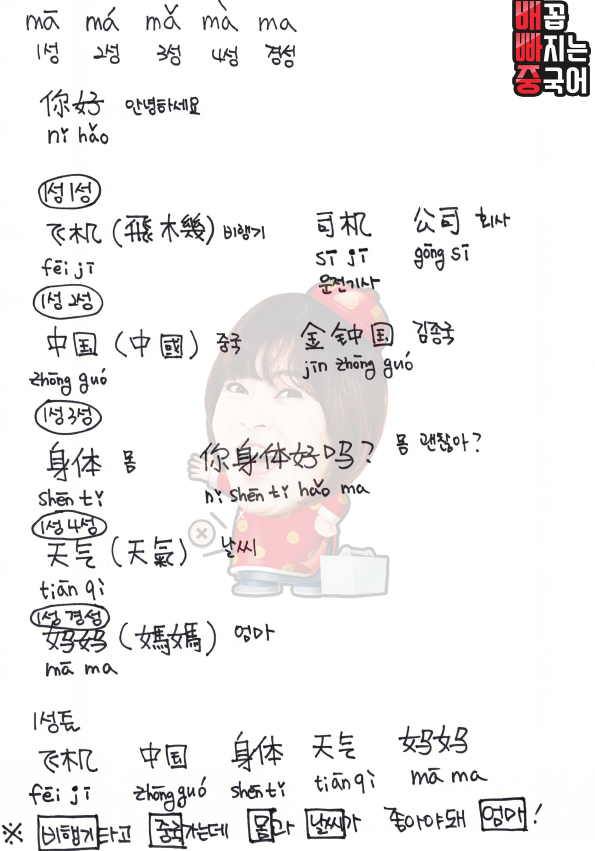 mā má mǎ mà ma
1성 2성 3성 4성 경성
배꼽
빠지는
중국어
你好 안녕하세요
ni hǎo
1성1성
飞机 (飛木幾) 비행기 司机 公司 회사
fēi jī sī jī gōng sī
운전기사
1성2성
中国 (中國) 중국 金钟国 김종국
zhōng guó jīn zhōng guó
1성3성
身体 몸 你身体好吗? 몸 괜찮아?
shēn tǐ nǐ shēn tǐ hǎo ma
1성4성
天气 (天氣) 날씨
tiān qì
1성경성
妈妈 (媽媽) 엄마
mā ma
1성톤
飞机 中国 身体 天气 妈妈
fēi jī zhōng guó shēn tǐ tiān qì mā ma
※ 비행기타고 중국가는데 몸과 날씨가 좋아야돼 엄마!